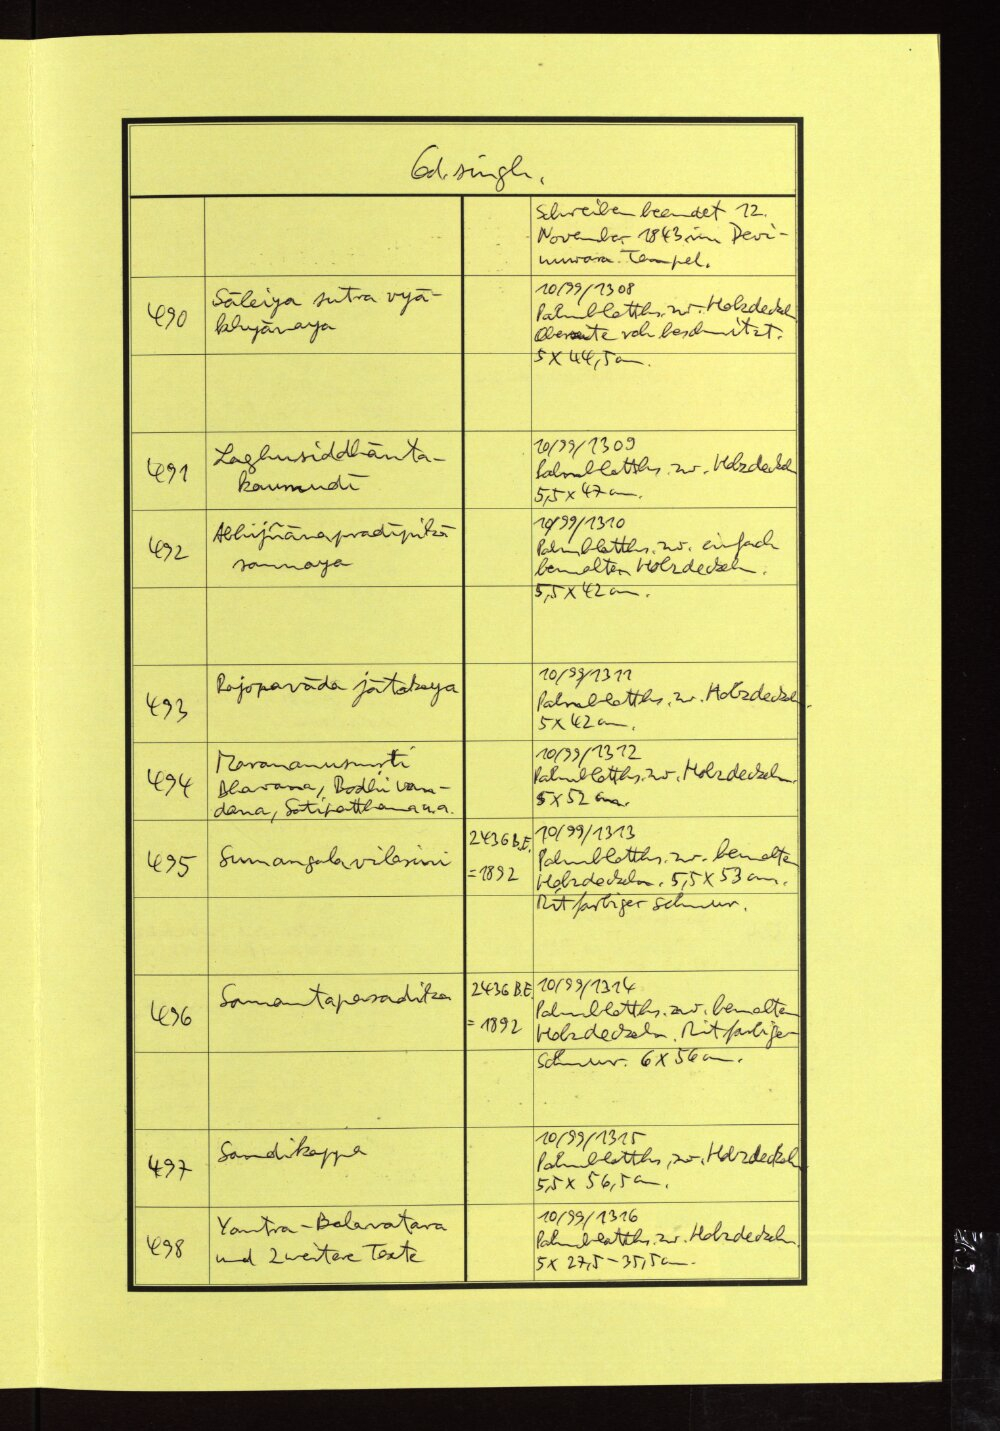 Cod. singh.
Schreiben beendet 12.
November 1843 im Devi-
nuwara Tempel.
490
Sāleiya sutra vyā-
khyānaya
10/99/1308
Palmblatths. zw. Holzdeckeln
Oberseite roh beschnitzt.
5 X 44,5 cm.
491
Laghusiddhānta-
kaumudī
10/99/1309
Palmblatths. zw. Holzdeckeln
5,5 x 47 cm.
492
Abhijñānapradīpikā
sannaya
10/99/1310
Palmblatths. zw. einfach
bemalten Holzdeckeln.
5,5 X 42 cm.
493
Rajopavāda jātakaya
10/99/1311
Palmblatths. zw. Holzdeckeln.
5 X 42 cm.
494
Marananusmrti
Bhavana, Bodhi Van-
dana, Satipatthana u.a.
10/99/1312
Palmblatths. zw. Holzdeckeln.
5 X 52 cm.
495
Sumangalavilasini
2436 B.E.
= 1892
10/99/1313
Palmblatths. zw. bemalten
Holzdeckeln. 5,5 X 53 cm.
Mit farbiger Schnur.
496
Samantapasadika
2436 B.E.
= 1892
10/99/1314
Palmblatths. zw. bemalten
Holzdeckeln. Mit farbiger
Schnur. 6 X 56 cm.
497
Sandikappa
10/99/1315
Palmblatths. zw. Holzdeckeln
5,5 x 56,5 cm.
498
Yantra-Balavatara
und 2 weitere Texte
10/99/1316
Palmblatths. zw. Holzdeckeln.
5 x 27,5 - 35,5 cm.